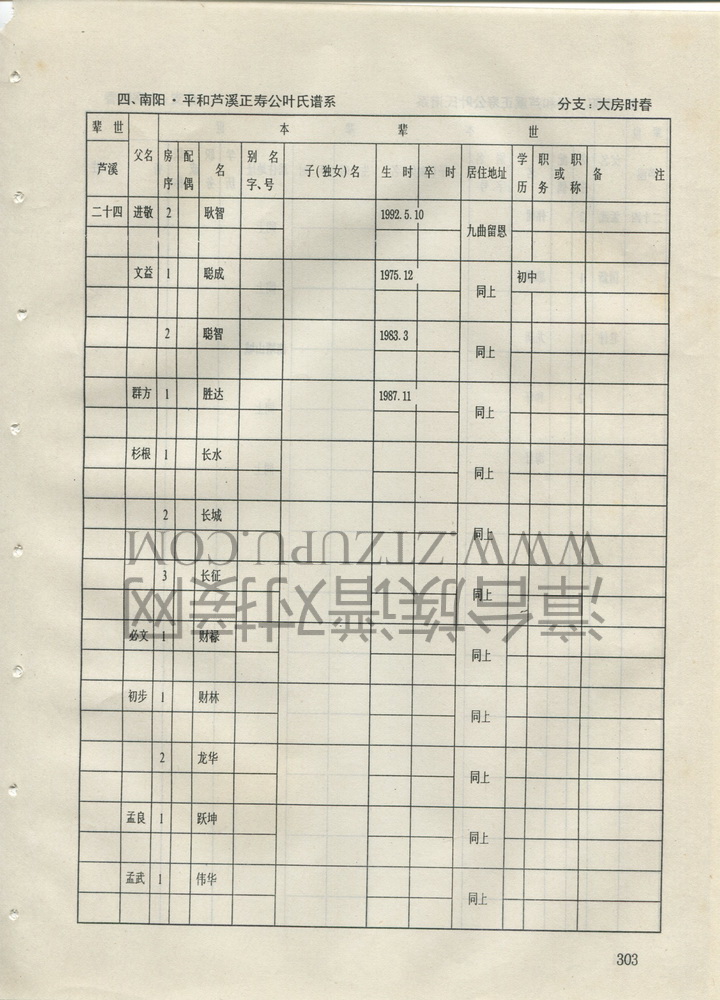 四、南阳·平和芦溪正寿公叶氏谱系 分支：大房时春
辈世 本辈世
芦溪 父名 房序 配偶 名 别名字、号 子(独女)名 生时 卒时 居住地址 学历 职务或职称 备注
二十四 进敬 2 耿智 1992.5.10 九曲留恩
文益 1 聪成 1975.12 同上 初中
2 聪智 1983.3 同上
群方 1 胜达 1987.11 同上
杉根 1 长水 同上
2 长城 同上
WWW.ZTZUPU.COM
3 长征 同上
漳台族谱对接网
必文 1 财禄 同上
初步 1 财林 同上
2 龙华 同上
孟良 1 跃坤 同上
孟武 1 伟华 同上
303